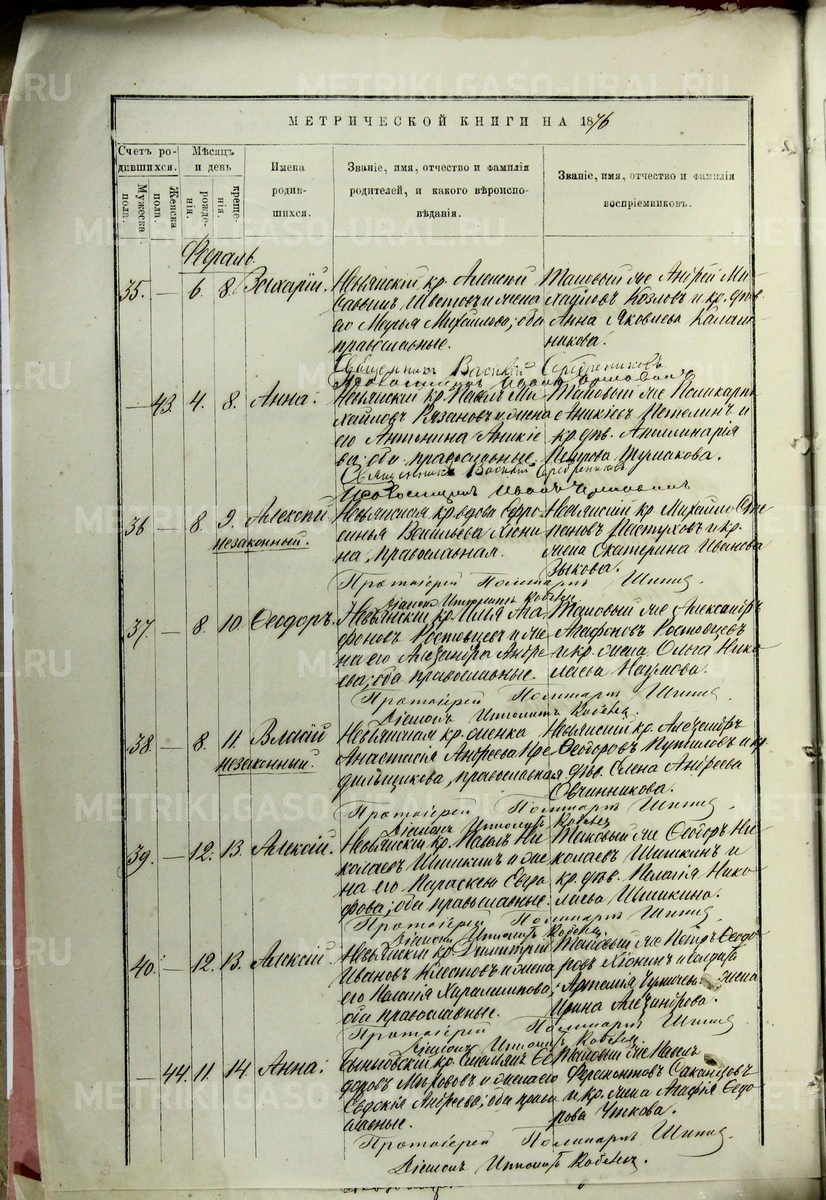 МЕТРИЧЕСКОЙ КНИГИ НА 1876
Счетъ ро-
дившихся.
Мужеска
пола.
Женска
пола.
Мѣсяцъ
и день
рожде-
нія.
креще-
нія.
Имена
родив-
шихся.
Званіе, имя, отчество и фамилія
родителей, и какого вѣроиспо-
вѣданія.
Званіе, имя, отчество и фамилія
воспріемниковъ.
Февраль.
35. — 6. 8. Захарій.
Невьянскій кр. Алексѣй
и жена
его Марья Михайлова; оба
православные.
Таковый же Андрей Ми-
хайловъ Козловъ и кр. дѣв.
Анна Яковлева Калаш-
никова.
Священникъ Василій Серебрениковъ
— 43. 4. 8. Анна.
Невьянскій кр. Павелъ Ми-
хайловъ Рязановъ и жена
его Антонина Аникіе-
ва; оба православные.
Таковый же Поликарпъ
Аникіевъ Петелинъ и
кр. дѣв. Апилинарія
Петрова Тумакова.
Священникъ Василій Серебрениковъ
Псаломщикъ Иванъ
36 — 8. 9. Алексѣй
незаконный.
Невьянская кр. вдова Ефро-
синья Васильева Хіони-
на, православная.
Невьянскій кр. Михайло Сте-
пановъ Пастуховъ и кр.
жена Екатерина Иванова
Зыкова.
Протоіерей Поликарпъ
Діаконъ Ипполитъ
37. — 8. 10. Ѳеодоръ.
Невьянскій кр. Илья Ага-
фоновъ Ростовцевъ и же-
на его Александра Андре-
ева; оба православные.
Таковый же Александръ
Агафоновъ Ростовцевъ
и кр. жена Ольга Нико-
лаева Наумова.
Протоіерей Поликарпъ
Діаконъ Ипполитъ
38. — 8. 11. Власій
незаконный.
Невьянская кр. женка
Анастасія Андреева Пря-
дильщикова, православная
Невьянскій кр. Александръ
Ѳеодоровъ Путиловъ и кр.
дѣв. Елена Андреева
Овчинникова.
Протоіерей Поликарпъ
Діаконъ Ипполитъ
39. — 12. 13. Алексій.
Невьянскій кр. Павелъ Ни-
колаевъ Шишкинъ и же-
на его Параскева
оба православные.
Таковый же Ѳеодоръ Ни-
колаевъ Шишкинъ и
кр. дѣв. Пелагія Нико-
лаева Шишкина.
Протоіерей Поликарпъ
Діаконъ Ипполитъ
40. — 12. 13. Алексій.
Невьянскій кр. Димитрій
Ивановъ Клестовъ и жена
его Пелагія Харалампова;
оба православные.
Таковый же Петръ Ѳеодо-
ровъ Хіонинъ и солдата
жена
Ирина Александрова.
Протоіерей Поликарпъ
Діаконъ Ипполитъ
— 44. 11. 14. Анна.
Быньговскій кр.
доровъ и жена его
Евдокія Андреева; оба право-
славные.
Таковый же Павелъ
Ферапонтовъ Саканцовъ
и кр. жена Агафія Ѳедо-
рова Уткова.
Протоіерей Поликарпъ
Діаконъ Ипполитъ
METRIKI.GASO-URAL.RU